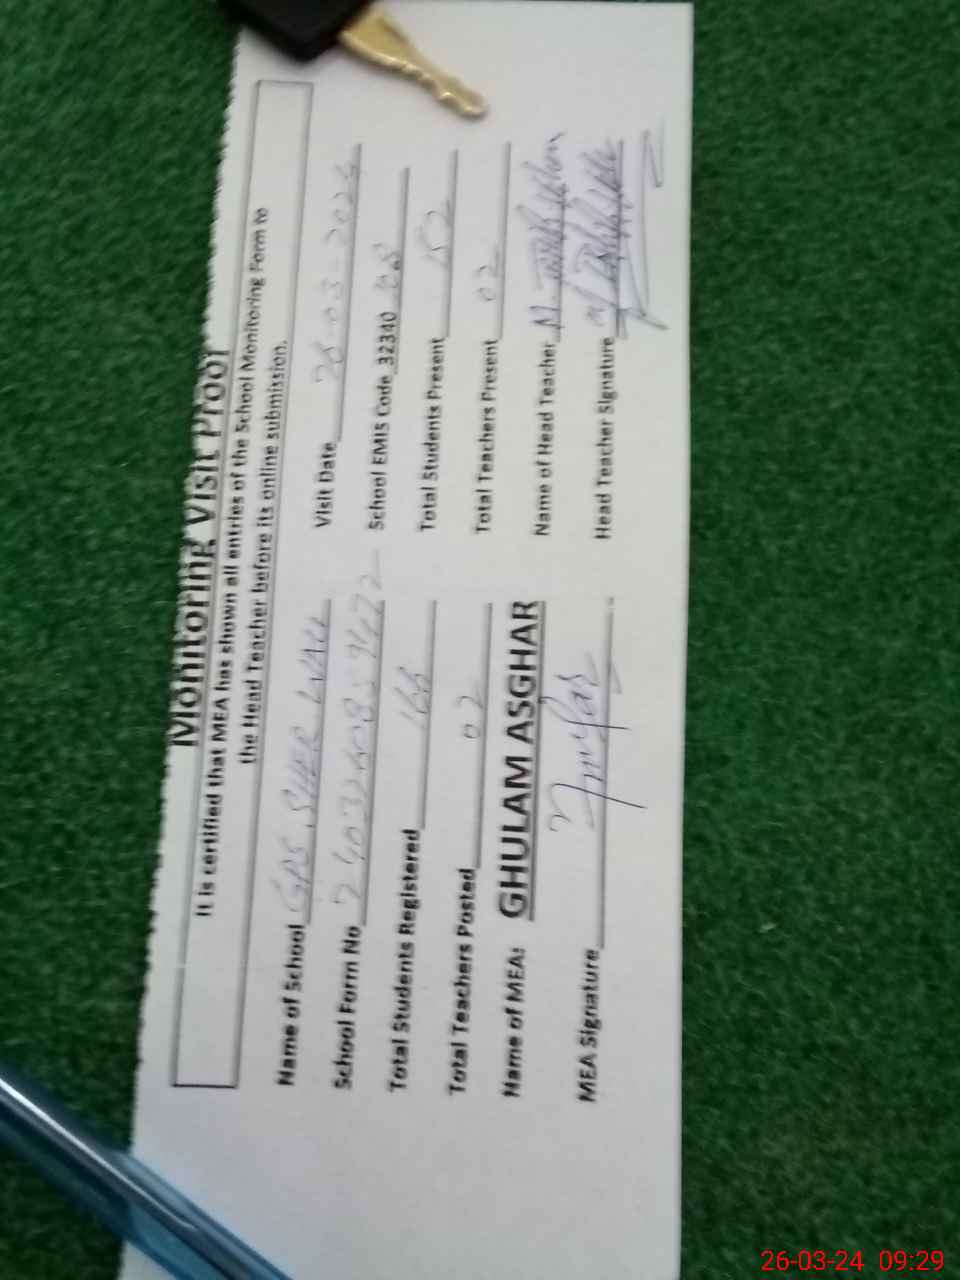 Monitoring Visit Proof
It is certified that MEA has shown all entries of the School Monitoring Form to
the Head Teacher before its online submission.
Name of School GPS SHER WAH Visit Date 26-03-2024
School Form No School EMIS Code 32340
Total Students Registered 166 Total Students Present 152
Total Teachers Posted 02 Total Teachers Present 02
Name of MEA: GHULAM ASGHAR Name of Head Teacher
MEA Signature Head Teacher Signature
26-03-24 09:29